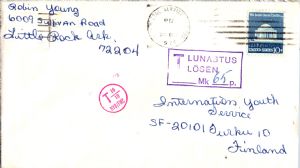 Robin Young
6009 Sullivan Road
Little Rock Ark.
72204
LUNASTUS
LÖSEN
T
Mk 65 p.
10c
T
International Youth
Service
SF-20101 Turku 10
Finland